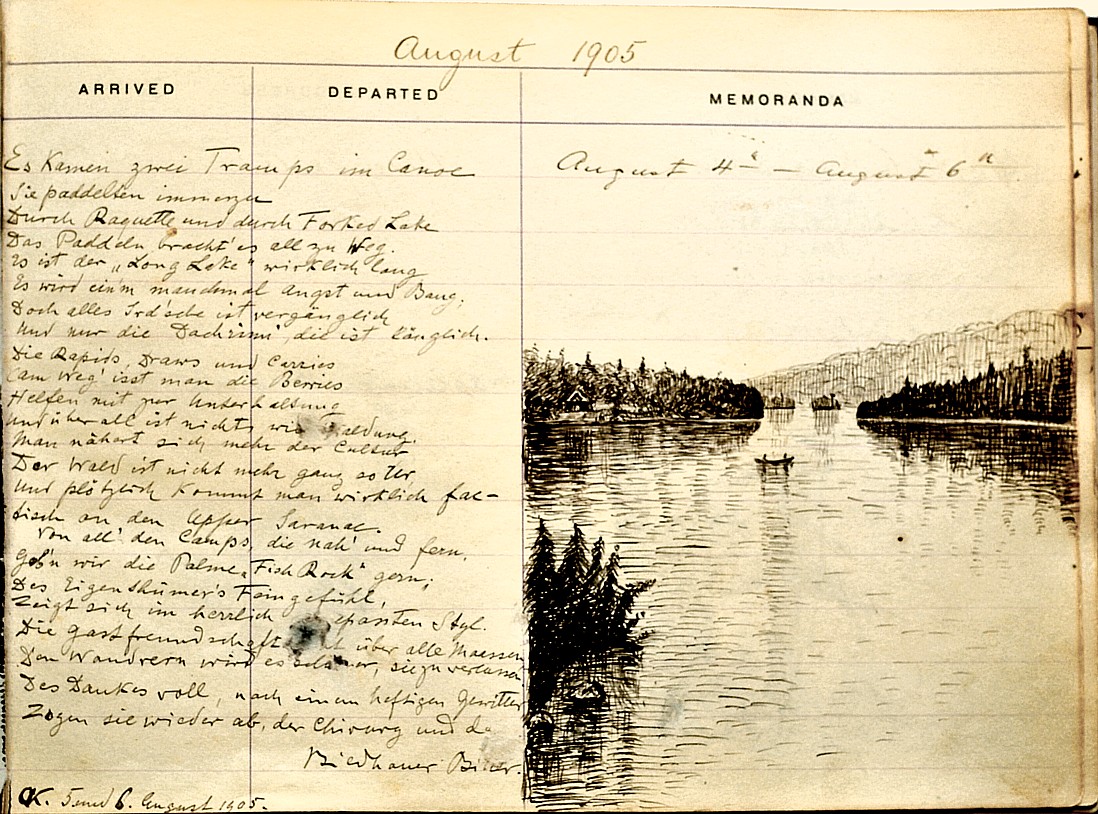 August 1905
ARRIVED DEPARTED MEMORANDA
August 4 – August 6
Es Kamen zwei Tramps im Canoe
Sie paddelten immerzu
Durch Raquette und durch Forked Lake
Das Paddeln bracht' es all zu Weg.
Es ist der „Long Lake" wirklich lang
Es wird ein'm manchmal Angst und Bang;
Doch alles Ird'sche ist vergänglich
Und nur die die ist länglich.
Die Rapids, Draws und Carries
(am Weg' isst man die Berries
Helfen mit zur Unterhaltung
Und überall ist nichts wie
Man nähert sich mehr der Cultur
Der Wald ist nicht mehr ganz so Ur
Und plötzlich Kommt man wirklich fac-
tisch an den Upper Saranac.
Von all' den Camps, die nah' und fern,
Geb'n wir die Palme „Fish Rock" gern;
Des Eigenthümer's Feingefühl,
Zeigt sich im herrlich Styl.
Die Gastfreundschaft über alle Maessen
Den Wandrern wird es schwer, sie zu verlassen
Des Dankes voll, nach einem heftigen Gewitter
Zogen sie wieder ab, der Chirurg und de
Bildhauer
CK. 5 und 6. August 1905.